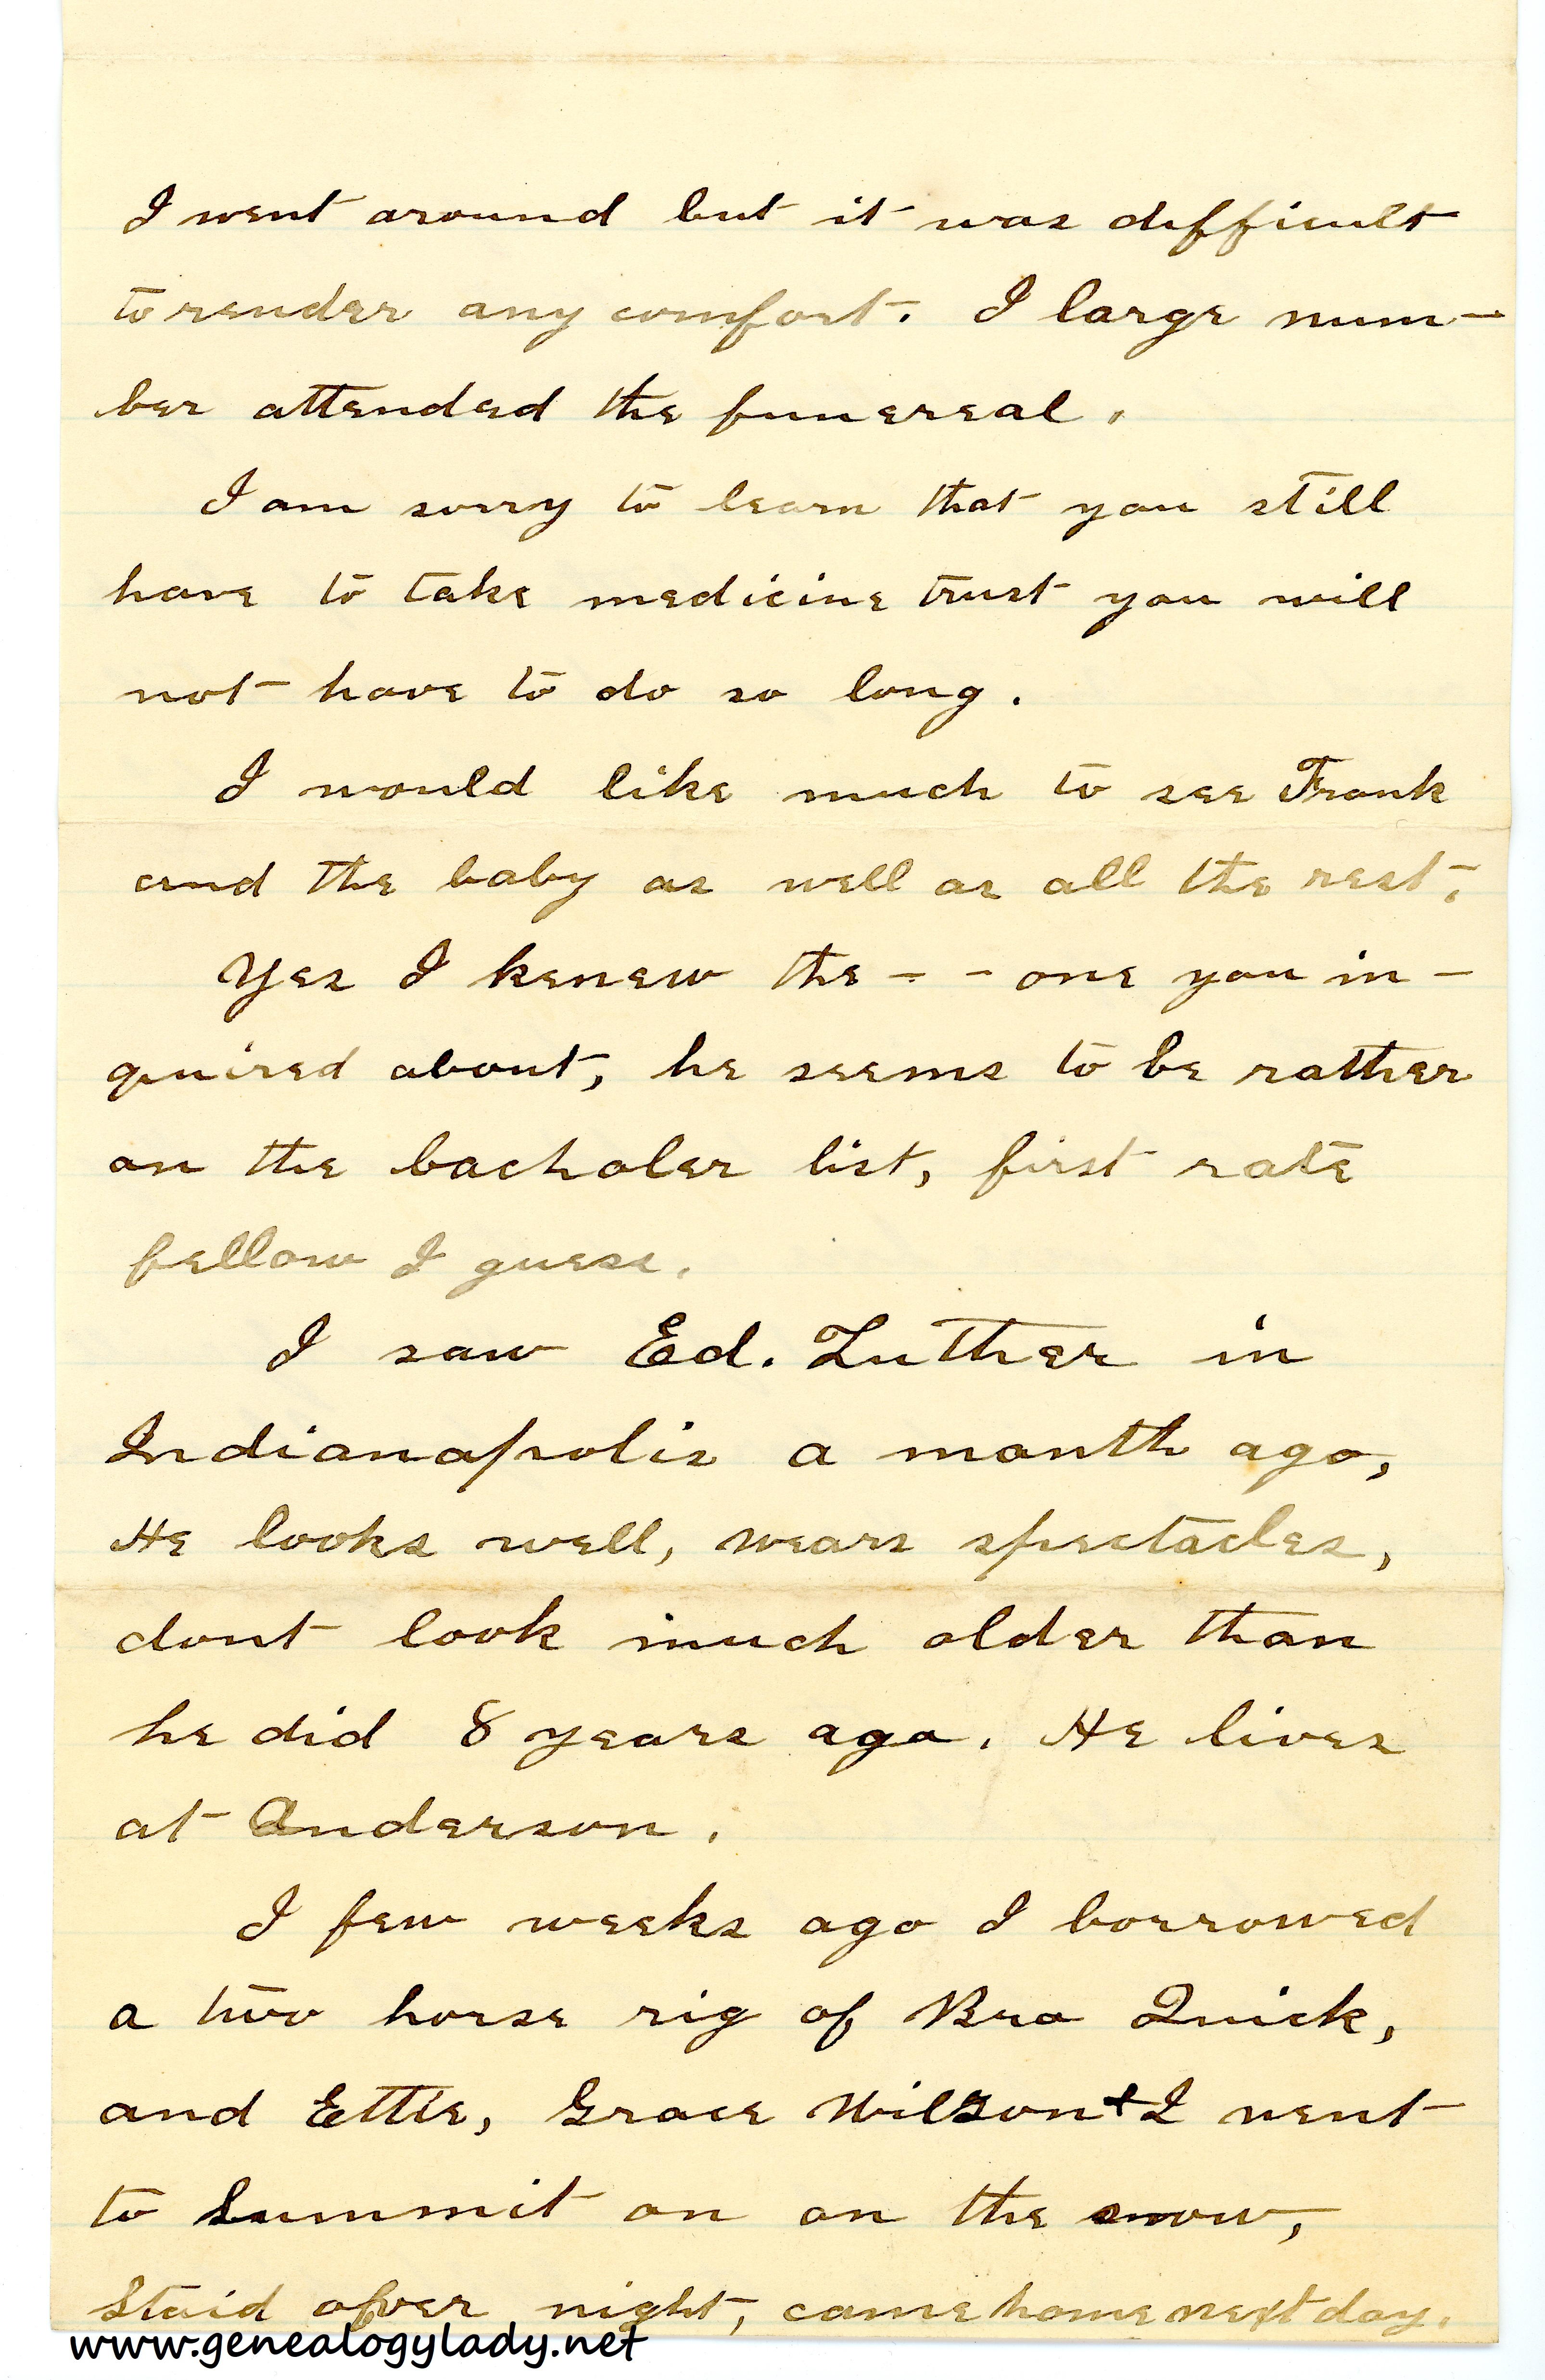 I went around but it was difficult
to render any comfort. I large num-
ber attended the funereal.
I am sorry to learn that you still
have to take medicine trust you will
not have to do so long.
I would like much to see Frank
and the baby as well as all the rest.
Yes I kenew the - - one you in-
quired about, he seems to be rather
on the bacholer list, first rate
fellow I guess.
I saw Ed. Luther in
Indianapolis a month ago,
He looks well, wears spectacles,
dont look much older than
he did 8 years ago. He lives
at Anderson.
I few weeks ago I borrowed
a two horse rig of Bro Quick,
and Ettie, Grace Wilson & I went
to Summit on on the snow,
Staid over night, came home next day.
www.genealogylady.net